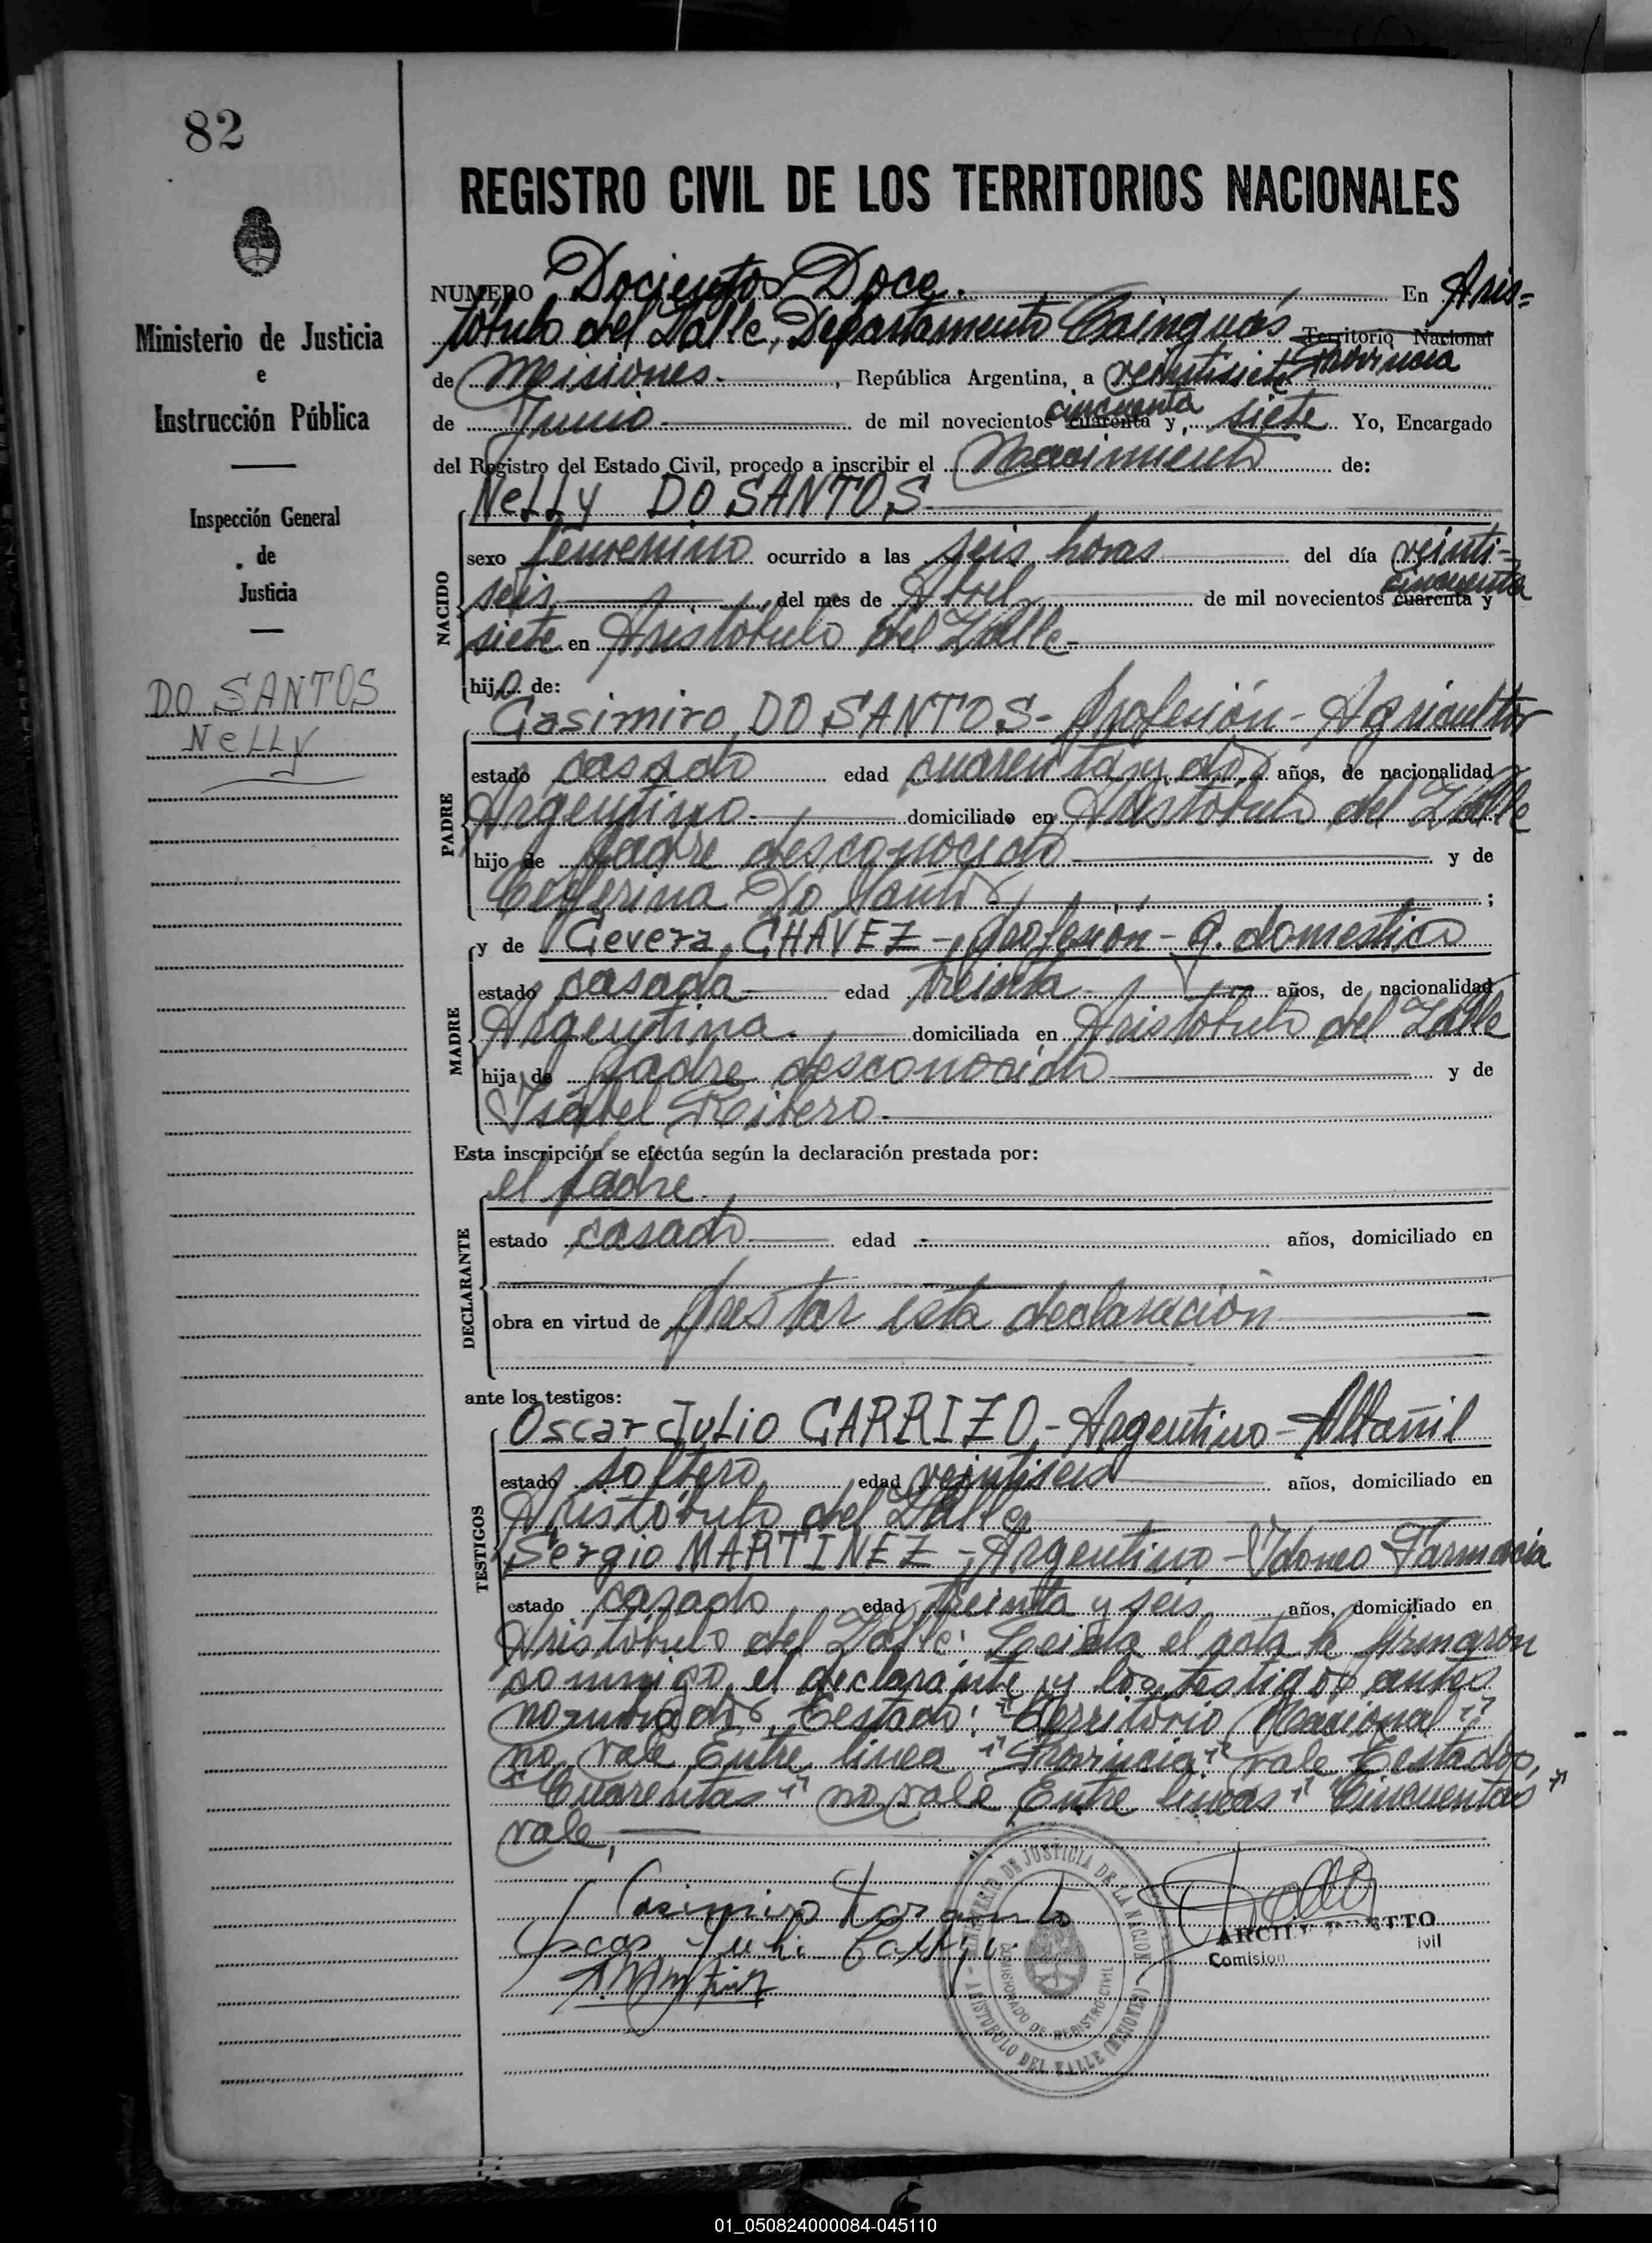 82
REGISTRO CIVIL DE LOS TERRITORIOS NACIONALES
Ministerio de Justicia
e
Instrucción Pública
Inspección General
de
Justicia
DO SANTOS
NeLLy
NUMERO Docientos Doce. En Aris=
tóbulo del Valle, Departamento Cainguás Territorio Nacional
Provincia
de Misiones.-, República Argentina, a veintisiete
cincuenta
de Junio- de mil novecientos cuarenta y siete Yo, Encargado
del Registro del Estado Civil, procedo a inscribir el Nacimiento de:
NACIDO
NeLLy DO SANTOS
sexo femenino ocurrido a las seis horas del día veinti-
cincuenta
seis del mes de Abril de mil novecientos cuarenta y
siete en Aristóbulo del Valle-
hija de:
PADRE
Casimiro DO SANTOS- Profesión- Agricultor
estado casado edad cuarenta y dos años, de nacionalidad
Argentino- domiciliado en Aristóbulo del Valle
hijo de padre desconocido y de
Ceferina Do Santos ;
MADRE
y de Gevera CHAVEZ-, Profesión- Q. domestico
estado casada- edad treinta- años, de nacionalidad
Argentina.- domiciliada en Aristóbulo del Valle
hija de padre desconocido y de
Isabel Reibero-
Esta inscripción se efectúa según la declaración prestada por:
DECLARANTE
el padre.
estado casado edad - años, domiciliado en
obra en virtud de prestar esta declaración
ante los testigos:
TESTIGOS
Oscar Julio CARRIZO,- Argentino- Albañil
estado soltero edad veintiseis años, domiciliado en
Aristóbulo del Valle
Sergio MARTINEZ-, Argentino- Idoneo Farmacia
estado casado edad treinta y seis años, domiciliado en
Aristóbulo del Valle: Leida el acta la firmaron
conmigo, el declarante y los testigos antes
nombrados. Testado: "Territorio Nacional"
no vale Entre linea "Provincia" vale Testados,
"Cuarentas" no vale Entre lineas "Cincuentas"
vale,
Casimiro
Oscar Julio Carrizo
MINISTERIO DE JUSTICIA DE LA NACION
COMISIONADO DE REGISTRO CIVIL
ARISTOBULO DEL VALLE (MISIONES)
Comision
ivil
01_050824000084-045110